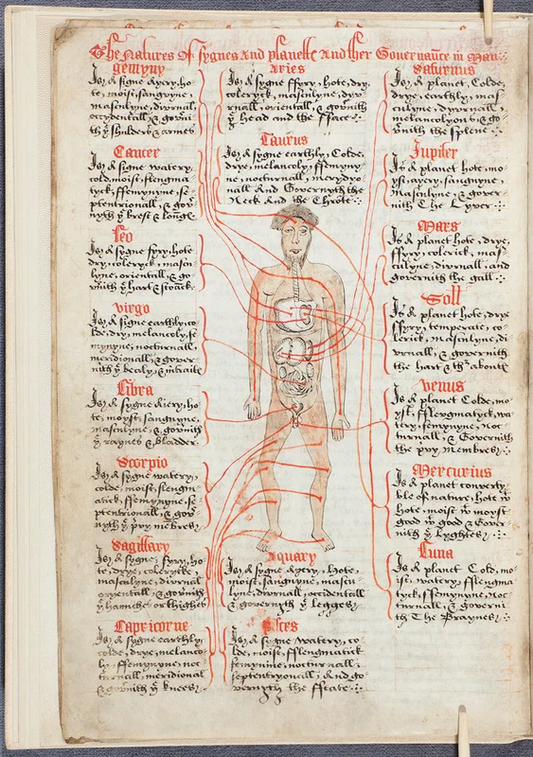 The Natures Of sygnes And planette And ther Governaunce in Man
gemyny
Is A sygne Ayery, ho
te, moist, sangvyne,
masculyne, divrnal,
occydentall & gov̄nith
th yͤ shulders & armes
Cancer
Is A sygne watery,
cold, moist, flengma
tyck, ffemynyne, se
ptentrionall, & gov̄
nyth yͤ brest & longe
leo
Is A sygne fyry, hote
dry, coleryck, mascu
lyne, orientall, & go
v̄nith yͤ hart & stoack
virgo
Is A signe earthly, co
lde, dry, melancoly, fe
mynyne, nocturnall,
meridionall, & gover
nith yͤ bealy & intraile
libra
Is A sygne Aiery, ho
te, moist, sangvyne,
masculyne, & gov̄nith
yͤ raynes & bladder
Scorpio
Is A sygne watery,
colde, moist, flengm
atick, ffemynyne, se
ptentrionall, & gov̄
nyth yͤ prvy mēbres
Sagittary
Is A sygne fyry, ho
te, drye, colerycke
masculyne, divrnal
oryentall, & gov̄nith
yͤ hamche or thighes
Capricorne
Is A sygne earthly,
colde, drye, melanco
ly, ffemynyne, noc
turnall, meridional
& gov̄nith yͤ knees
Aries
Is A sygne ffyry, hote, dry,
coleryck, masculyne, dyv
rnall, orientall, & gov̄nith
yͤ head and the fface
Taurus
Is A sygne earthly, Colde,
drye, melancoly, ffemyny
ne, nocturnall, merydyo
nall And Governyth the
Neck And the Throte
Aquary
Is A sygne Ayery, hote,
moist, sangvyne, mascu
lyne, divrnall, occidentall
& governyth yͤ legges
Pisces
Is A sygne watery, co
lde, moist, fflengmatick
femynine, nocturnall,
septentryonall, And go
vernyth the ffeate
Saturnus
Is A planet, Colde,
drye, earthly, mas
culyne, dyvrnall,
melancolyous & go
v̄nith the splene
Jupiter
Is A planet hote, mo
yst, ayery, sangvyne,
masculyne & gover
nith The Lyver
Mars
Is A planet hote, drye,
ffyry, colerick, mas
culyne divrnall, and
governith the gall
Soll
Is A planet hote, drye
ffyry, temperate, co
lerick, masculyne, di
vrnall, & governith
the hart & th
Venus
Is A planet Colde, mo
yst, fflegmatyck, wa
tery, femynyne, noc
turnall, & Governith
the pvy membres
Mercurius
Is A planet converty
ble of nature, hote wͭ
hote, moist wͭ moyst
good wͭ good & Gover
nith yͤ Lyghtes
Luna
Is A planet Cold, mo
ist, watery, fflengma
tyck, ffemynyne, noc
turnall, & governi
th The Brayne